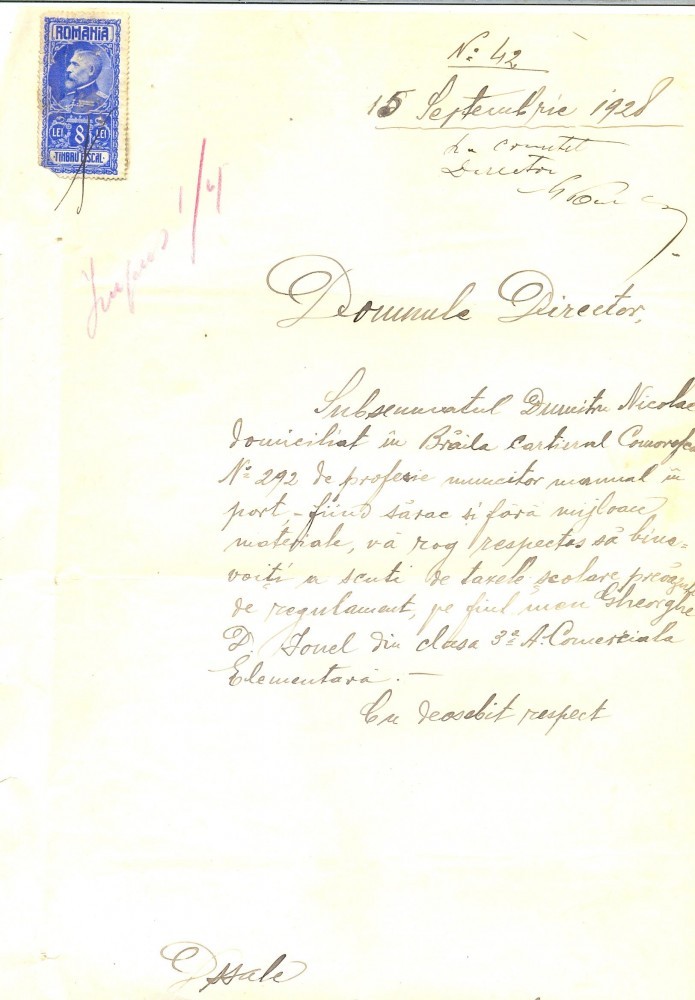 ROMANIA
LEI 8 LEI
TIMBRU FISCAL
No 42
15 Septembrie 1928
La comitet
Director
1/4
Domnule Director,
Subsemnatul Dumitru Nicolae
domiciliat în Brăila cartierul Comorofca
No 292 de profesie muncitor manual în
port, - fiind sărac și fără mijloace
materiale, vă rog respectos să bine-
voiți a scuti de taxele școlare prevăzute
de regulament, pe fiul meu Gheorghe
D. Ionel din clasa 3a A. Comerciala
Elementară. -
Cu deosebit respect
Dsale